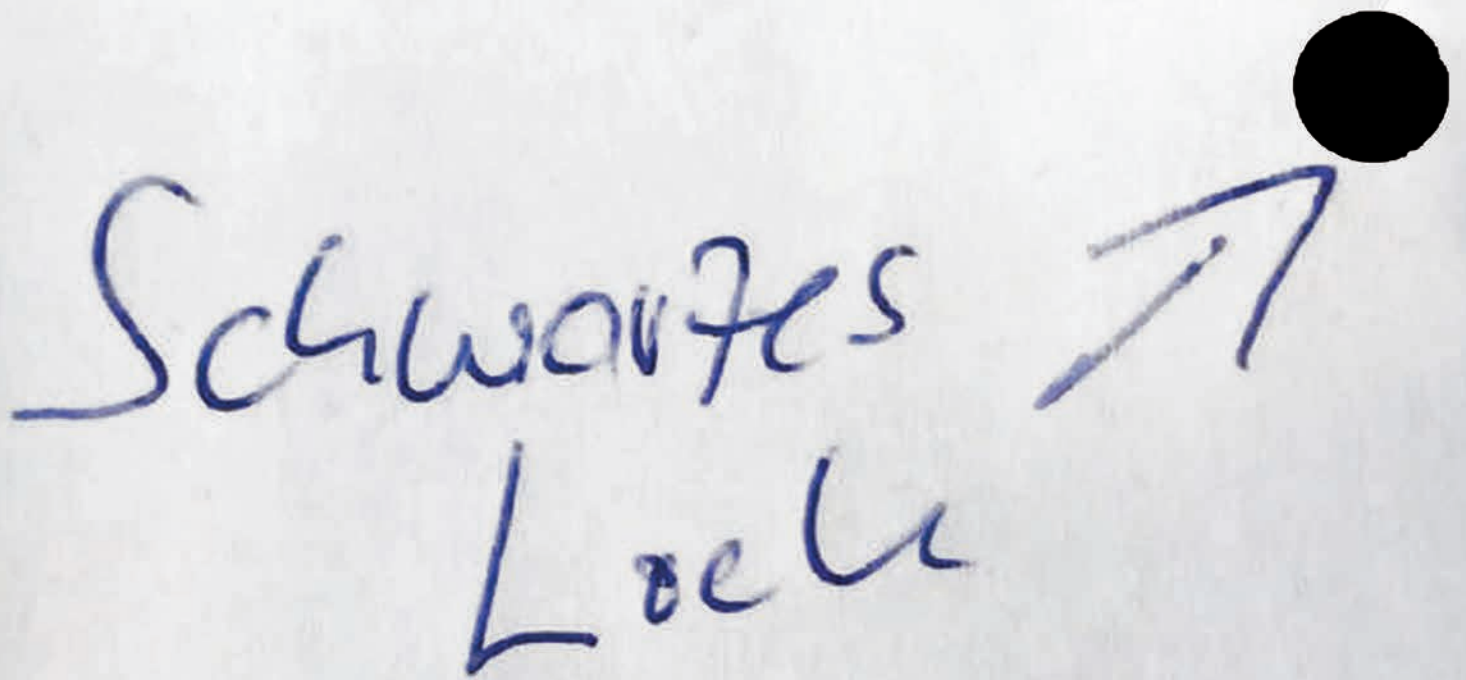 Schwarzes
Loch